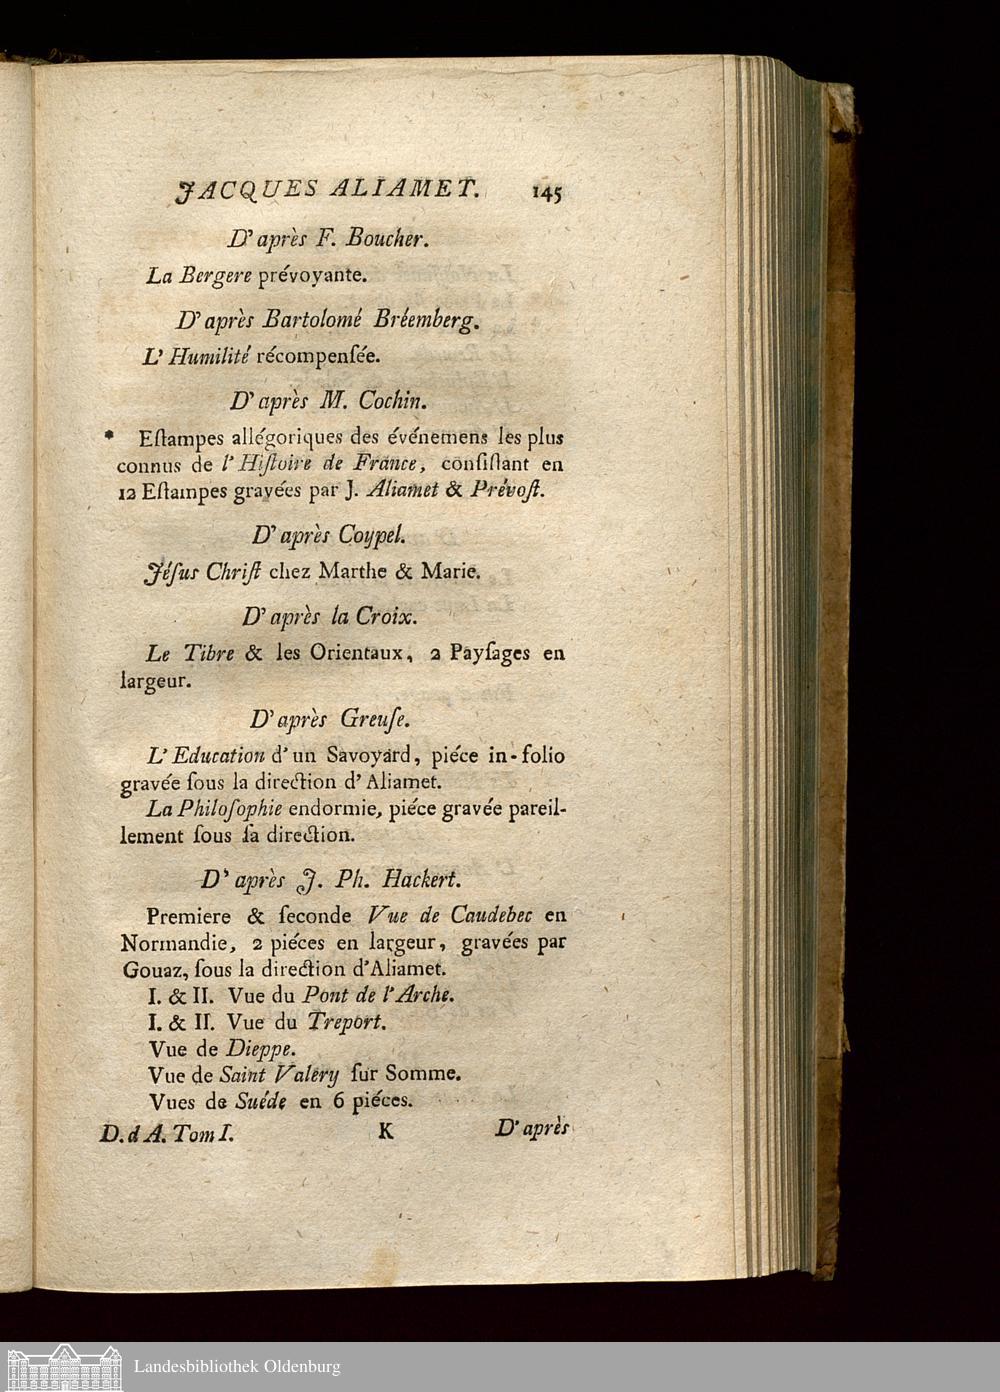 JACQUES ALIAMET. 145
D' après F. Boucher.
La Bergere prévoyante.
D' après Bartolomé Bréemberg.
L' Humilité récompenſée.
D' après M. Cochin.
* Eſtampes allégoriques des événemens les plus
connus de l' Hiſtoire de France, conſiſtant en
12 Eſtampes gravées par J. Aliamet & Prévoſt.
D' après Coypel.
Jéſus Chriſt chez Marthe & Marie.
D' après la Croix.
Le Tibre & les Orientaux, 2 Payſages en
largeur.
D' après Greuſe.
L' Education d' un Savoyard, piéce in-folio
gravée ſous la direction d' Aliamet.
La Philoſophie endormie, piéce gravée pareil-
lement ſous ſa direction.
D' après J. Ph. Hackert.
Premiere & ſeconde Vue de Caudebec en
Normandie, 2 piéces en largeur, gravées par
Gouaz, ſous la direction d'Aliamet.
I. & II. Vue du Pont de l'Arche.
I. & II. Vue du Treport.
Vue de Dieppe.
Vue de Saint Valery ſur Somme.
Vues de Suéde en 6 piéces.
D. d A. Tom I. K D' après
Landesbibliothek Oldenburg